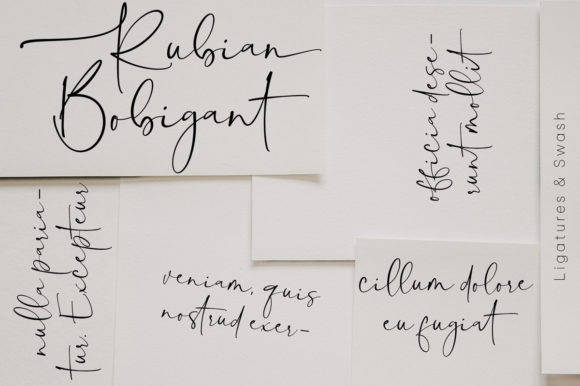 Rubian
Bobigant
officia dese-
runt mollit
Ligatures & Swash
nulla paria-
tur. Excepteur
veniam, quis
nostrud exer-
cillum dolore
eu fugiat